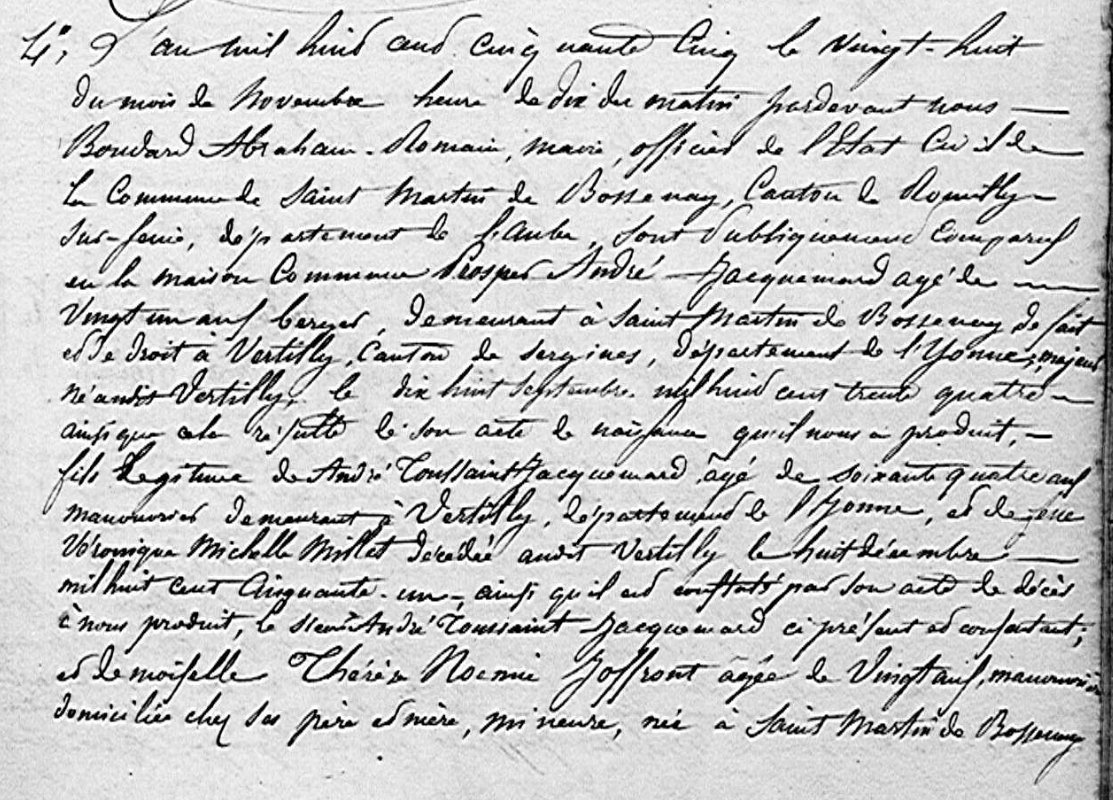 4°, L'an mil huit cent cinquante cinq le vingt-huit
du mois de Novembre heure de dix du matin pardevant nous —
Boudard Abraham-Romain, maire, officier de l'Etat Civil de
la Commune de Saint Martin de Bossenay, Canton de Romilly-
sur-Seine, département de l'Aube, sont publiquement comparus
en la maison Commune Prosper André Jacquemard agé de —
Vingt un ans berger, demeurant à Saint Martin de Bossenay de fait
et de droit à Vertilly, Canton de Sergines, département de l'Yonne, majeur
né audit Vertilly, le dix huit septembre mil huit cent trente quatre —
ainsi que cela résulte de son acte de naissance qu'il nous a produit, —
fils légitime de André Toussaint Jacquemard, âgé de soixante quatre ans
manouvrier demeurant à Vertilly, département de l'Yonne, et de feue
Véronique Michelle Millet décédée audit Vertilly le huit décembre —
mil huit cent cinquante-un, ainsi qu'il est constaté par son acte de décès
à nous produit, le sieur André Toussaint Jacquemard ci présent et consentant;
et demoiselle Thérèse Noemie Joffront agée de Vingt ans, manouvrière
domiciliée chez ses père et mère, mineure, née à Saint Martin de Bossenay